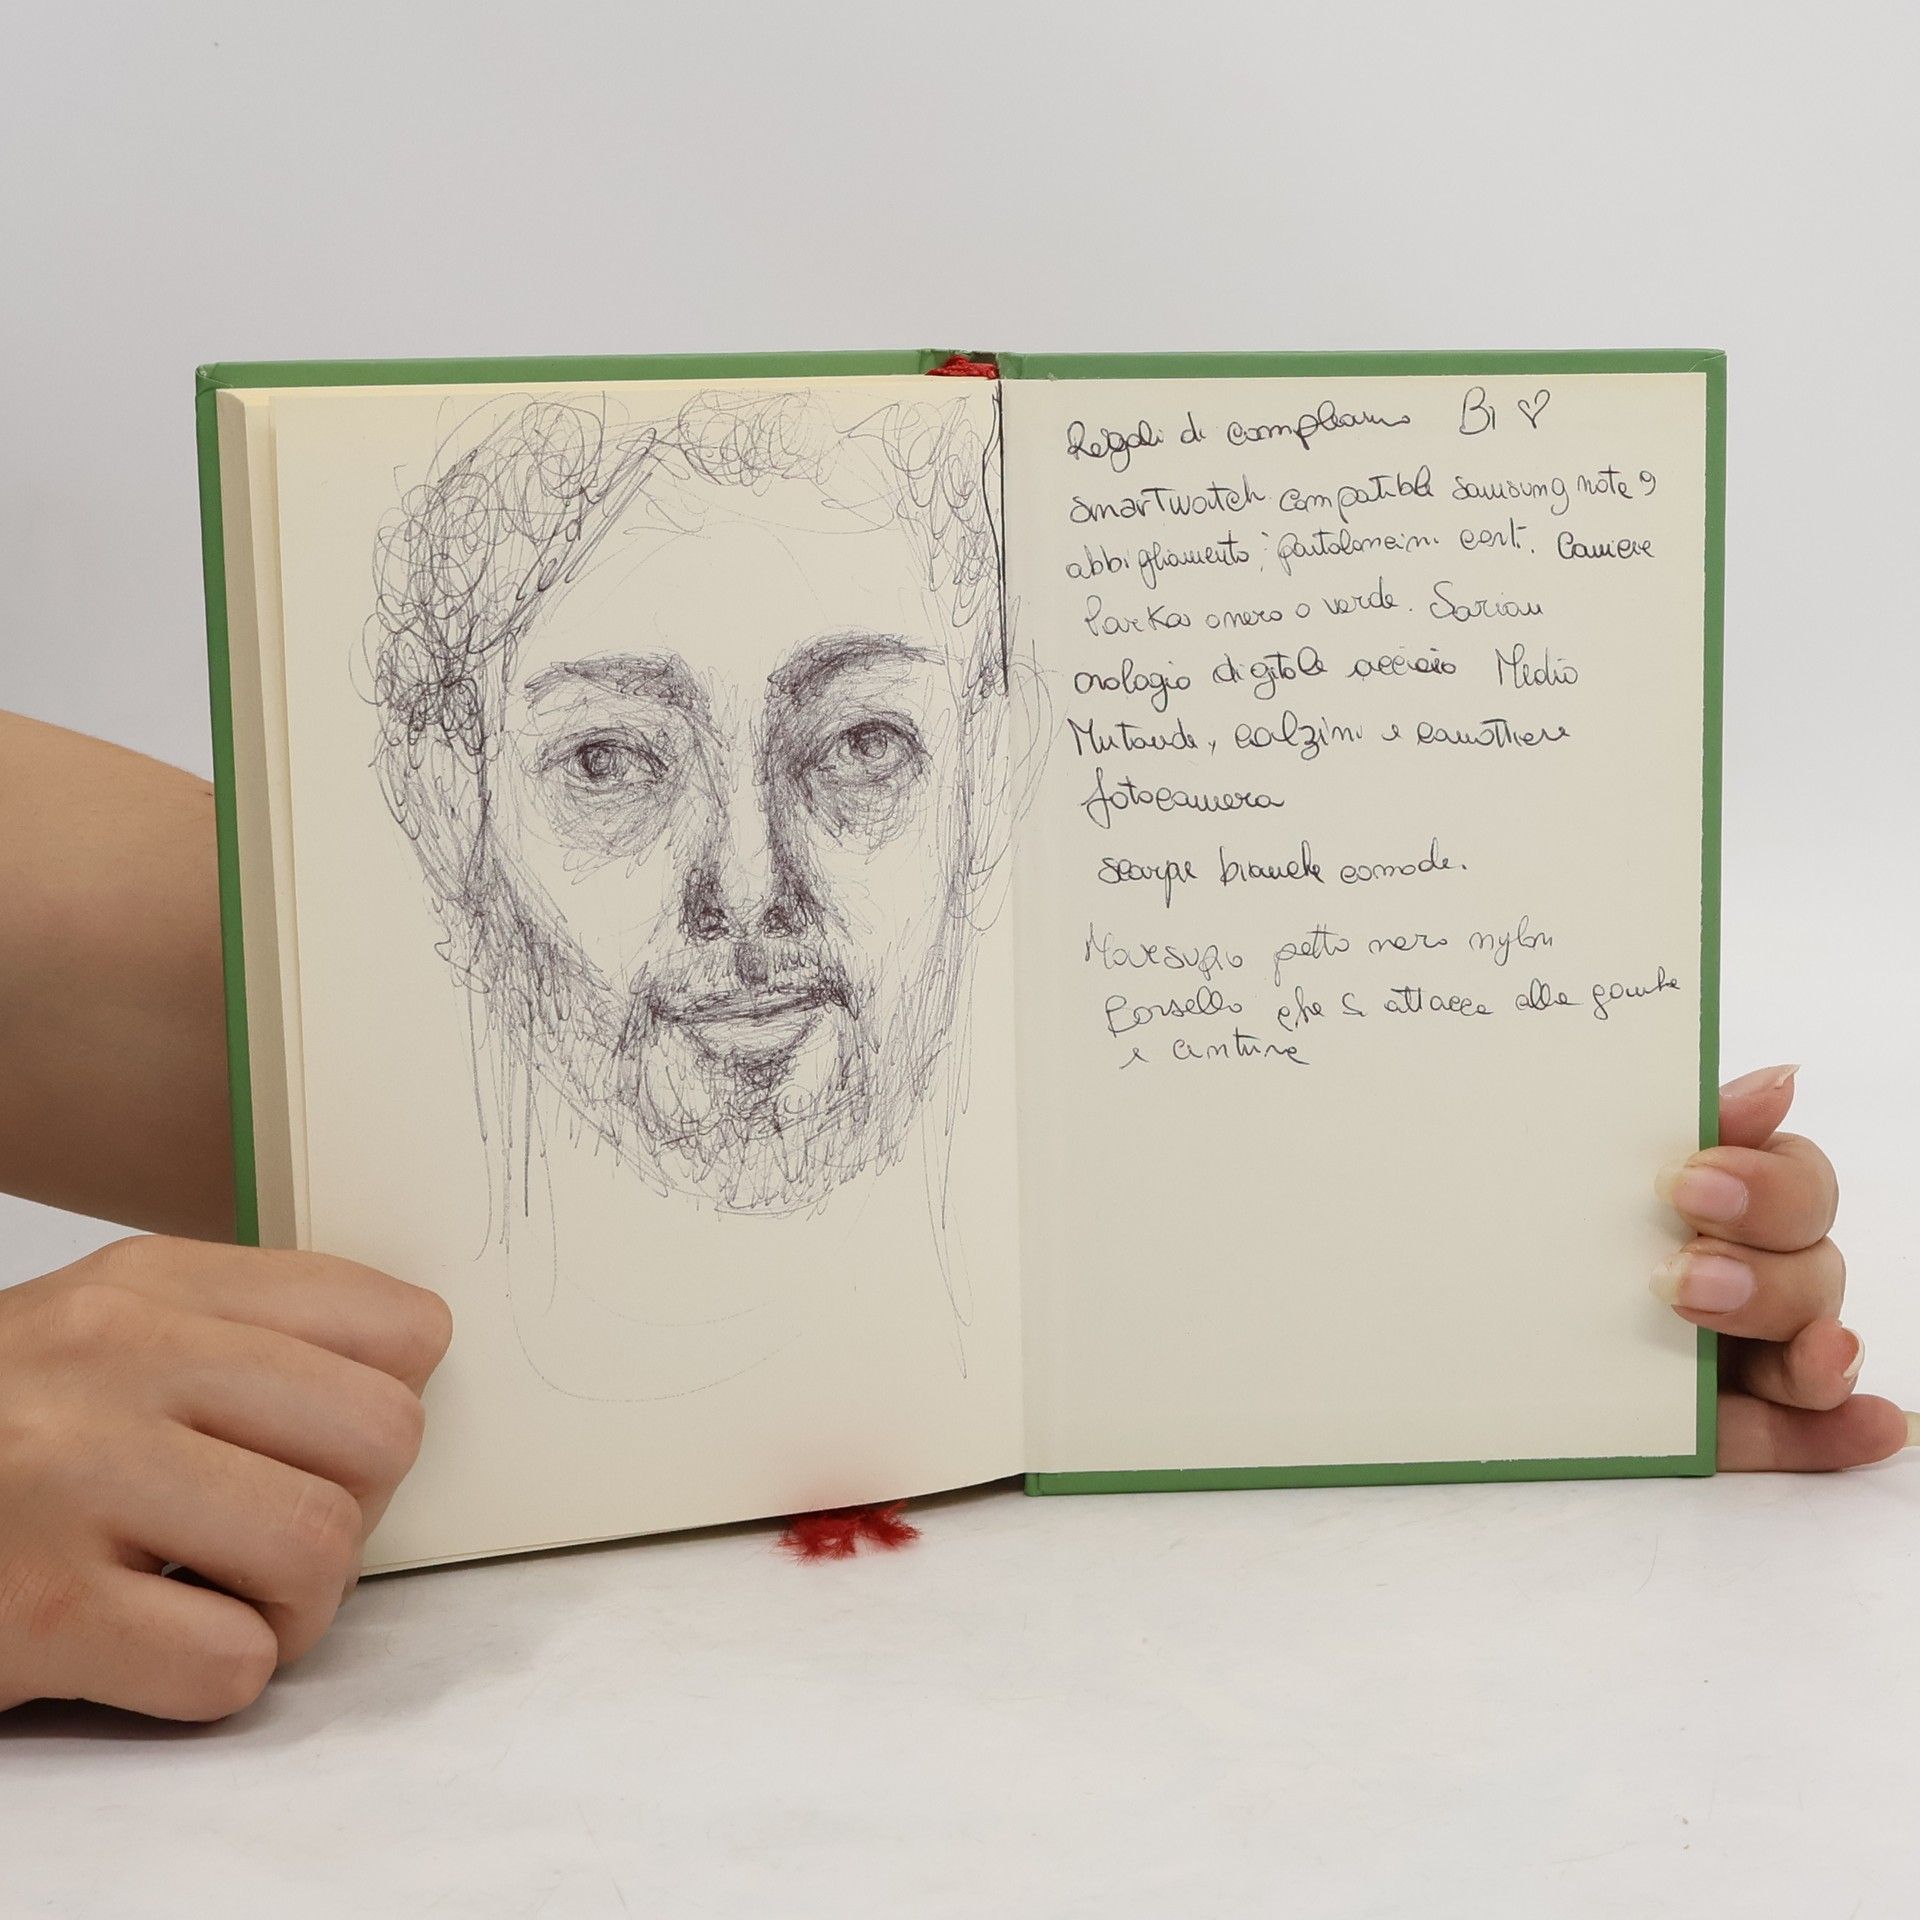 Regali di compleanno Bi ♡
smartwatch compatibile samsung note 9
abbigliamento: pantaloncini corti. Camicie
Parka o nero o verde.
orologio digitale acciaio Medio
Mutande, calzini e canottiere
fotocamera
scarpe bianche comode.
Marsupio petto nero nylon
Borsello che si attacca alla gambe
e cinture